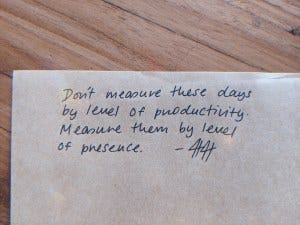 Don't measure these days
by level of productivity.
Measure them by level
of presence.